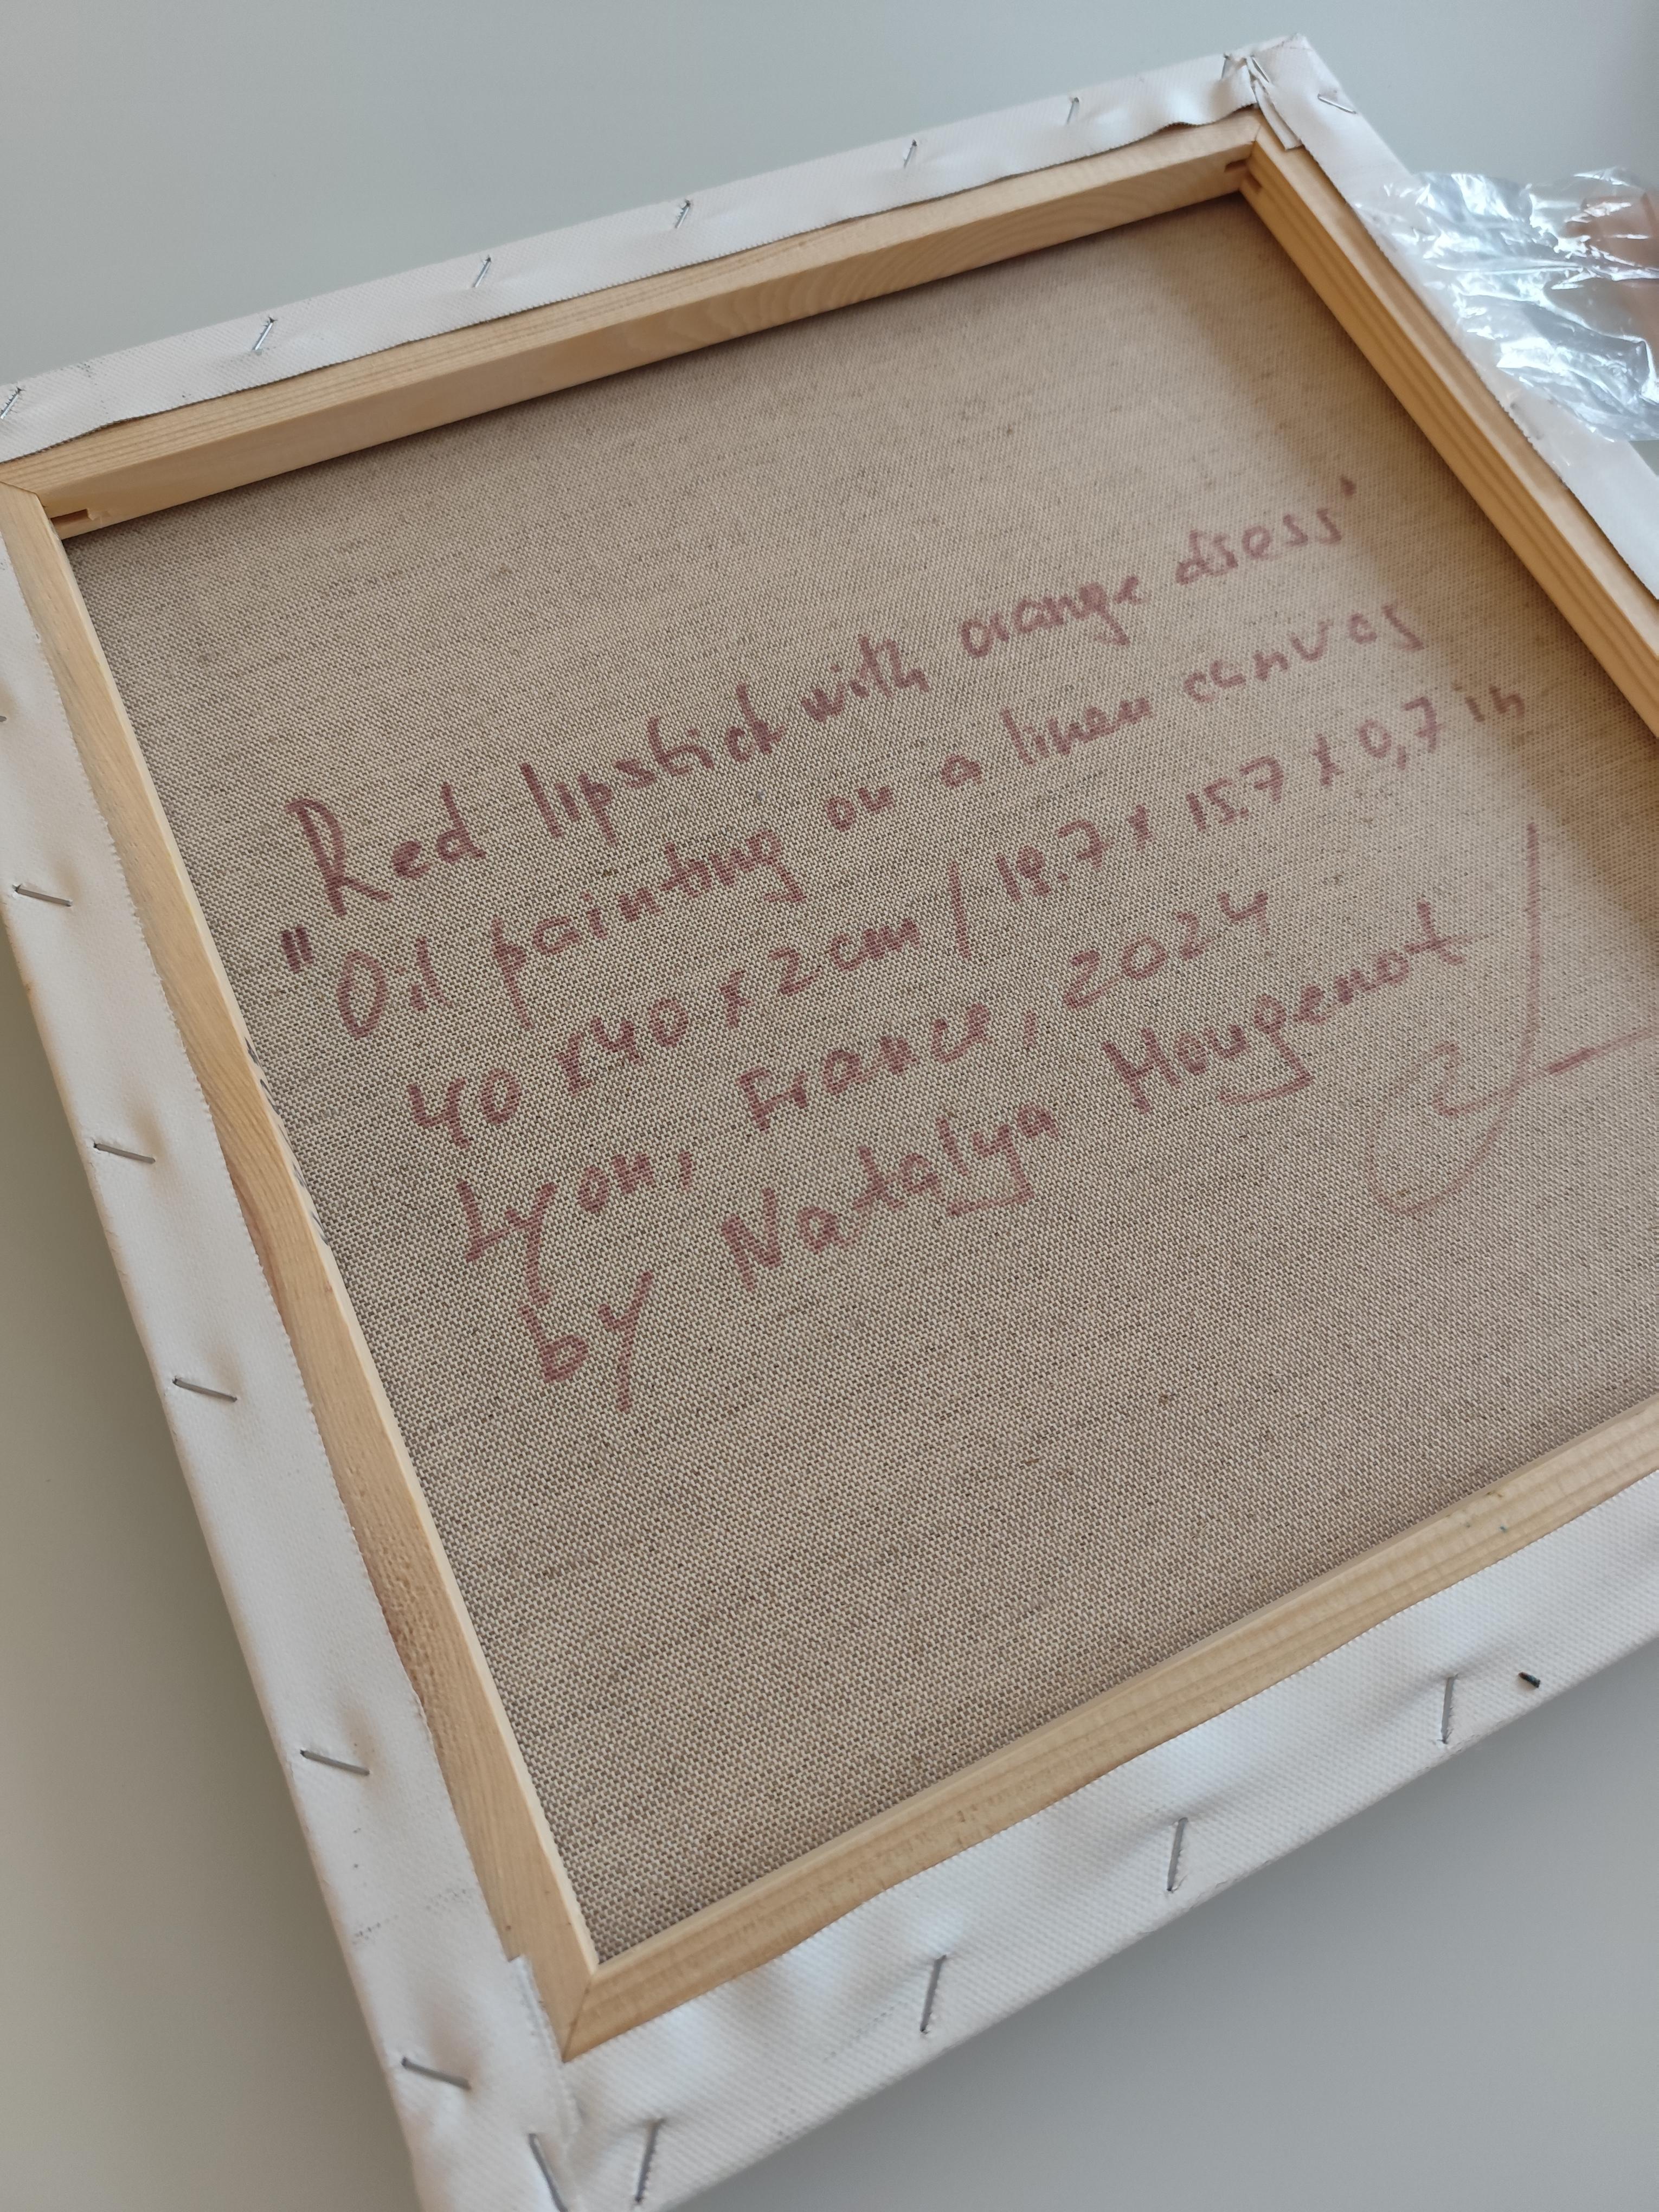 "Red lipstick with orange dress"
Oil painting on a linen canvas
40 x 40 x 2 cm / 19.7 x 15.7 x 0,7 in
Lyon, France, 2024
by Natalya Mougenot